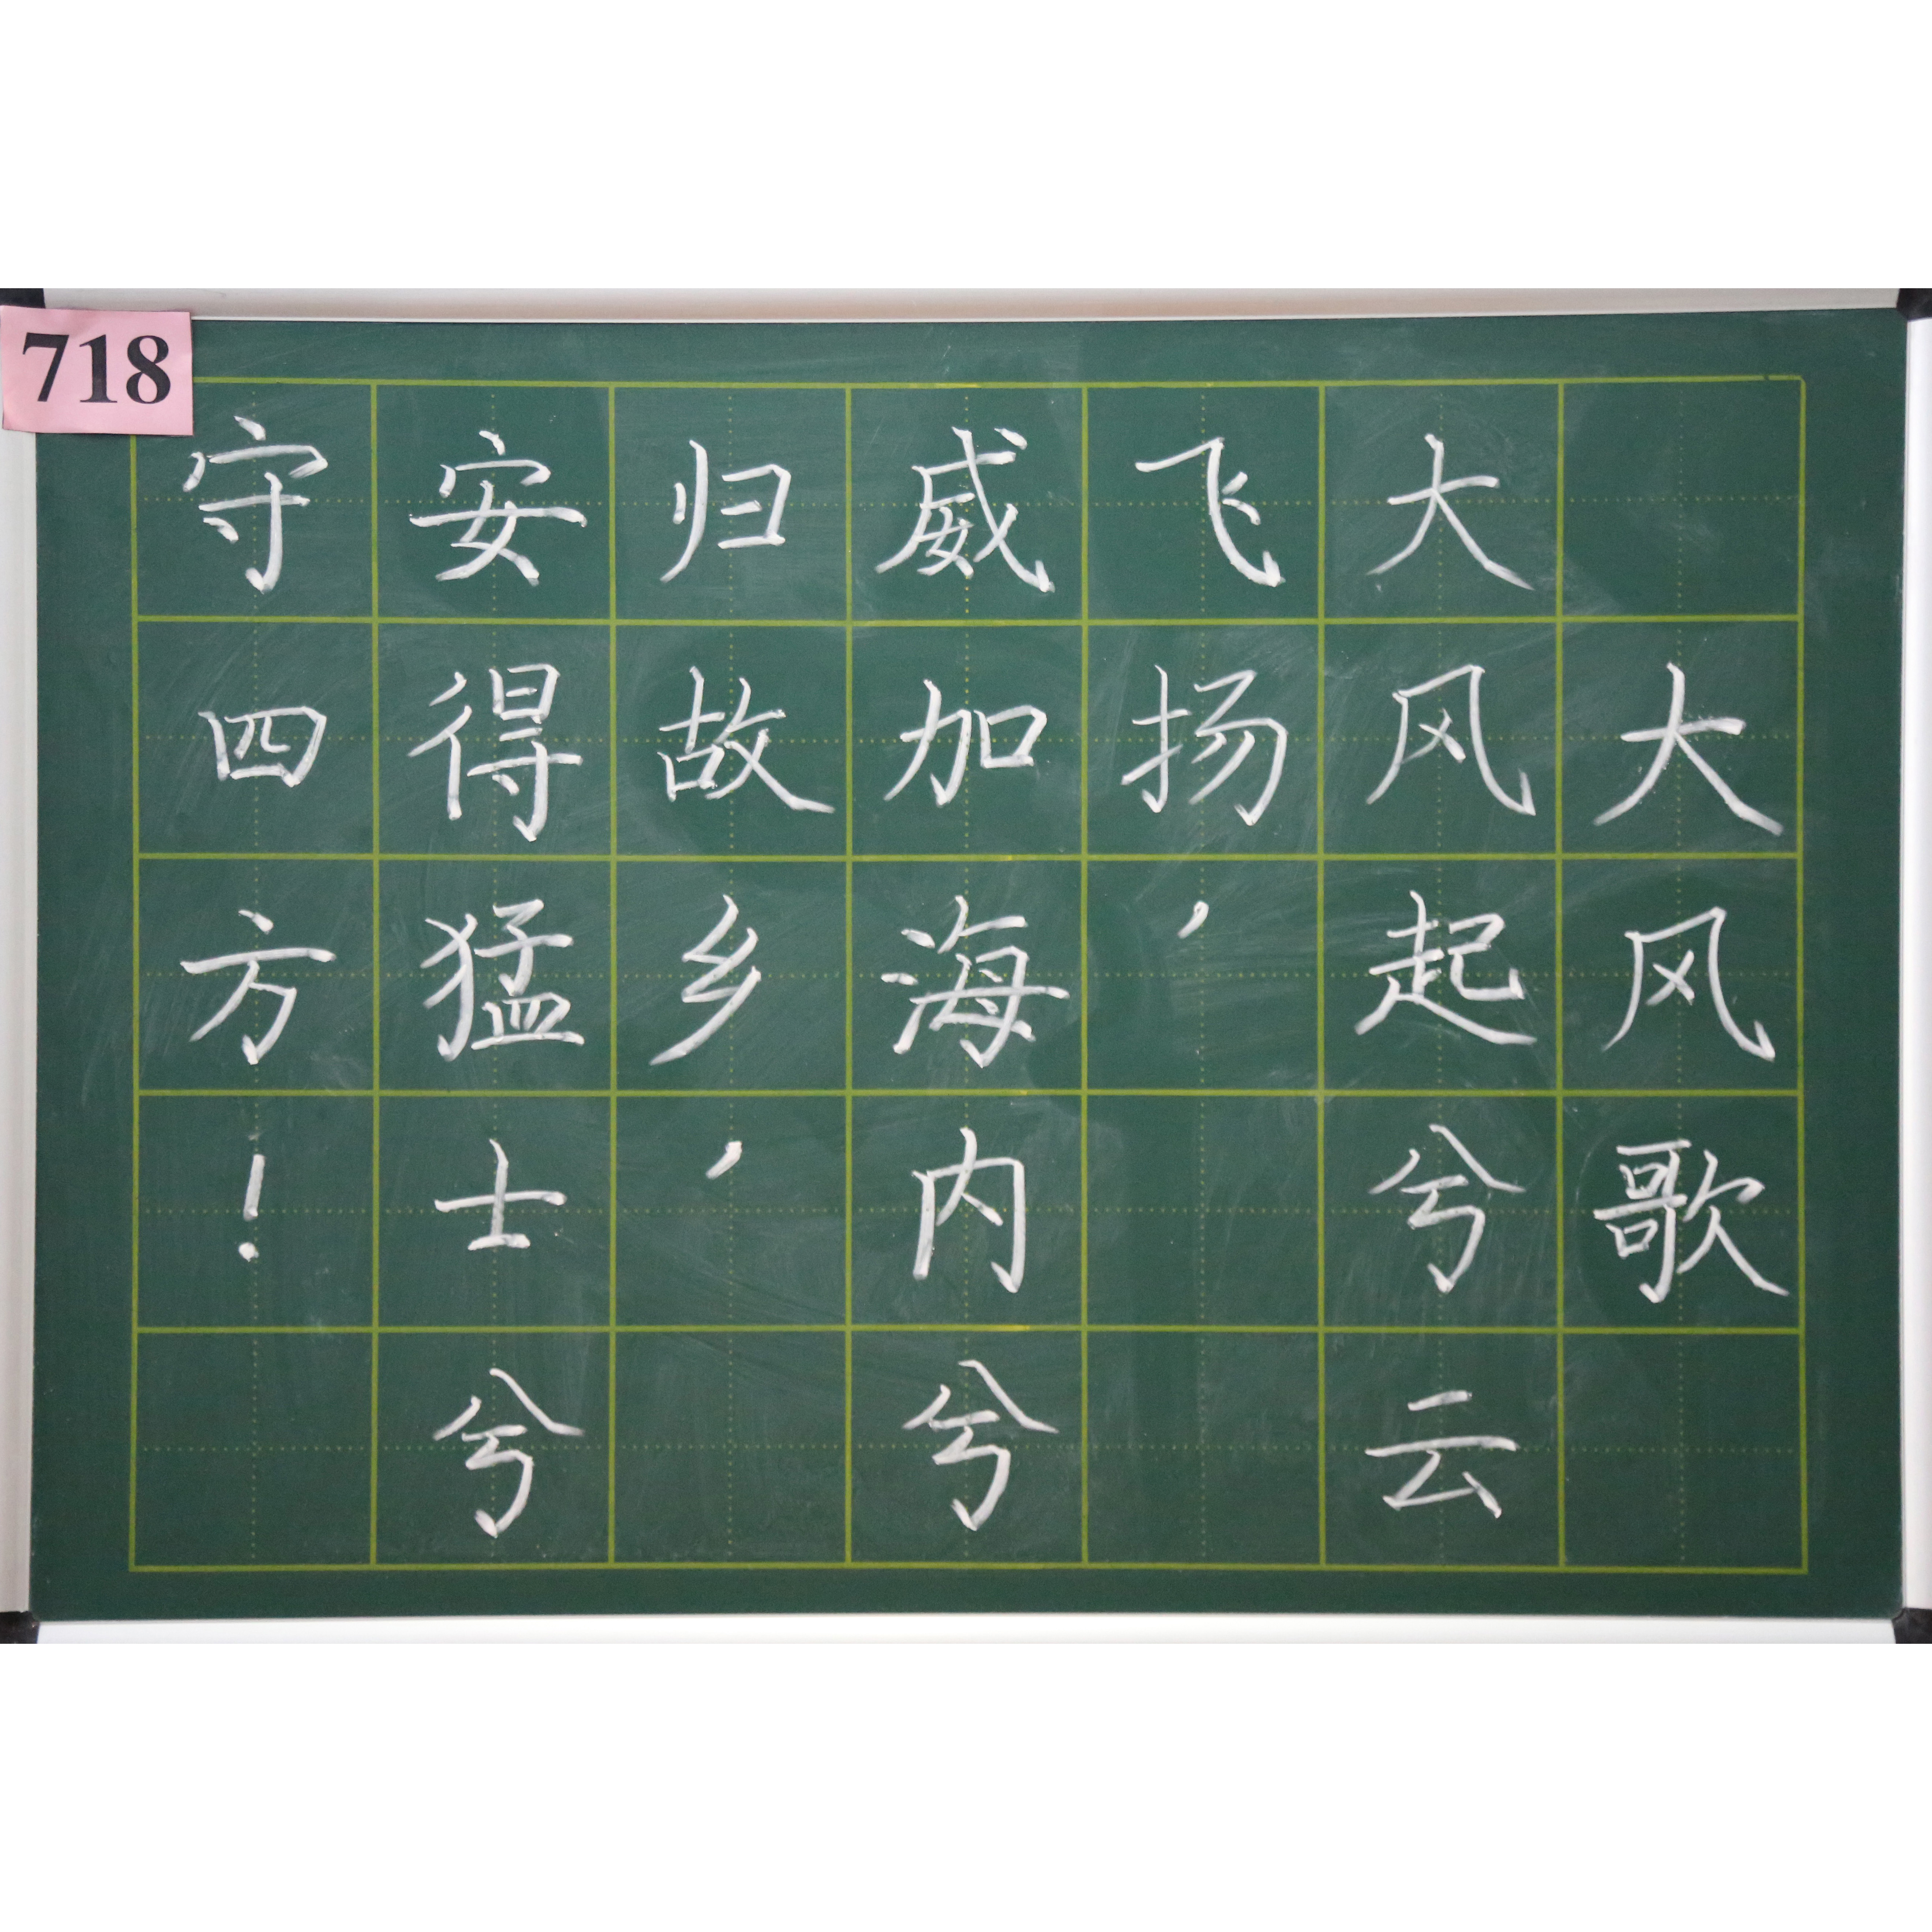 718
大风歌
大风起兮云
飞扬,
威加海内兮
归故乡,
安得猛士兮
守四方!